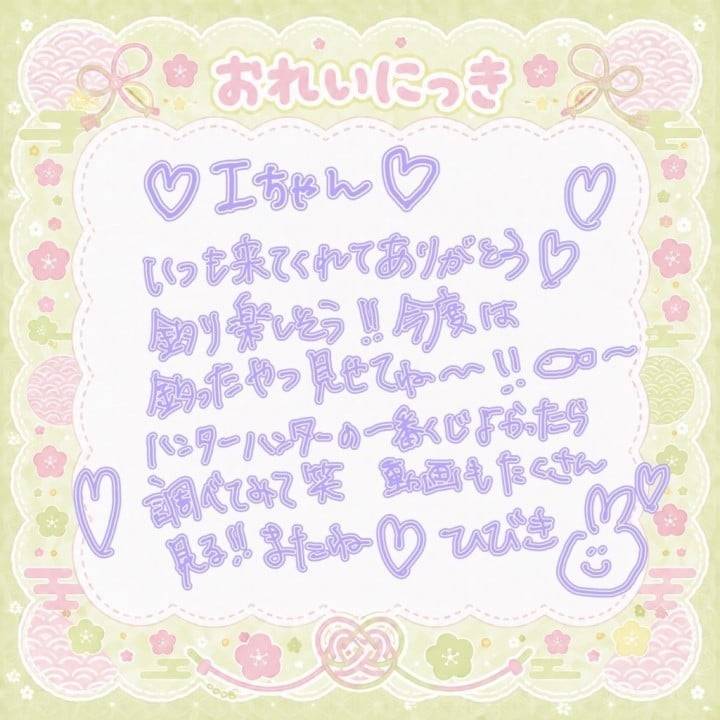 おれいにっき
♡エちゃん♡
いつも来てくれてありがとう♡
釣り楽しそう!!今度は
釣ったやつ見せてね〜!!
ハンターハンターの一番くじよかったら
調べてみて笑 動画もたくさん
見る!!またね♡ ひびき